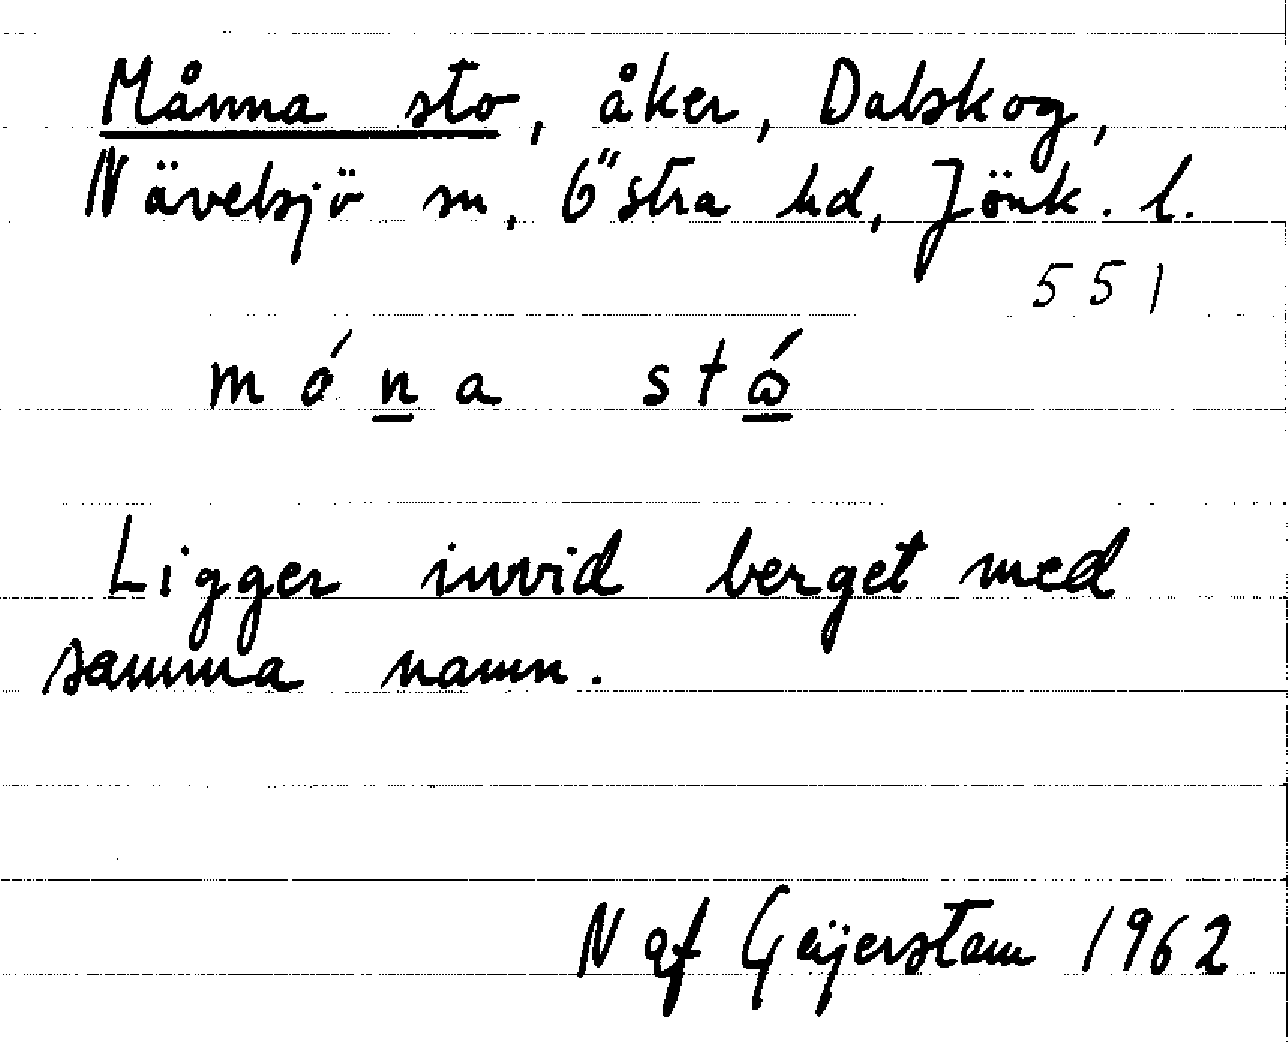 Månna sto, åker, Dalskog,
Nävelsjö sn, Östra hd, Jönk. l.
551
móna stó
Ligger invid berget med
samma namn.
N af Geijerstam 1962